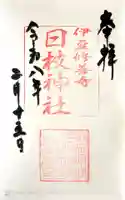 奉拝
伊豆修善寺
日枝神社
令和八年
二月十五日